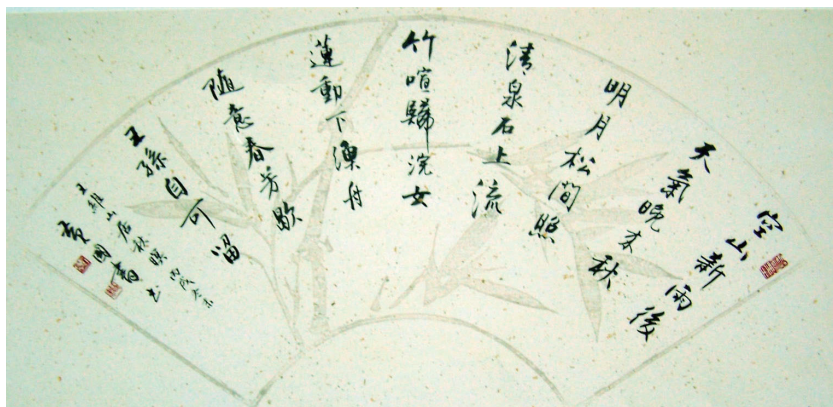 空山新雨後
天氣晚來秋
明月松間照
清泉石上流
竹喧歸浣女
蓮動下漁舟
隨意春芳歇
王孫自可留
王維山居秋暝
國書